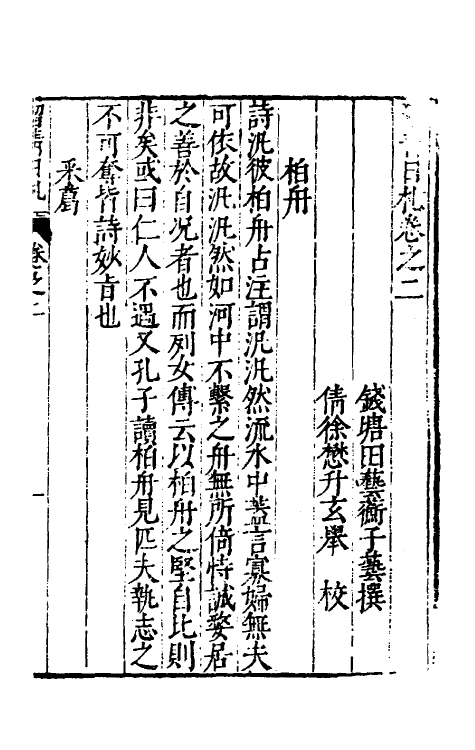 日札卷之二
錢塘田藝蘅子藝撰
倩徐懋升玄舉 校
柏舟
詩汎彼柏舟占注謂汎汎然流水中蓋言寡婦無夫
可依故汎汎然如河中不繫之舟無所倚恃誠嫠居
之善於自况者也而列女傳云以柏舟之堅自比則
非矣或曰仁人不遇又孔子讀柏舟見匹夫執志之
不可奪皆詩妙旨也
采葛
留青日札
卷之二
一